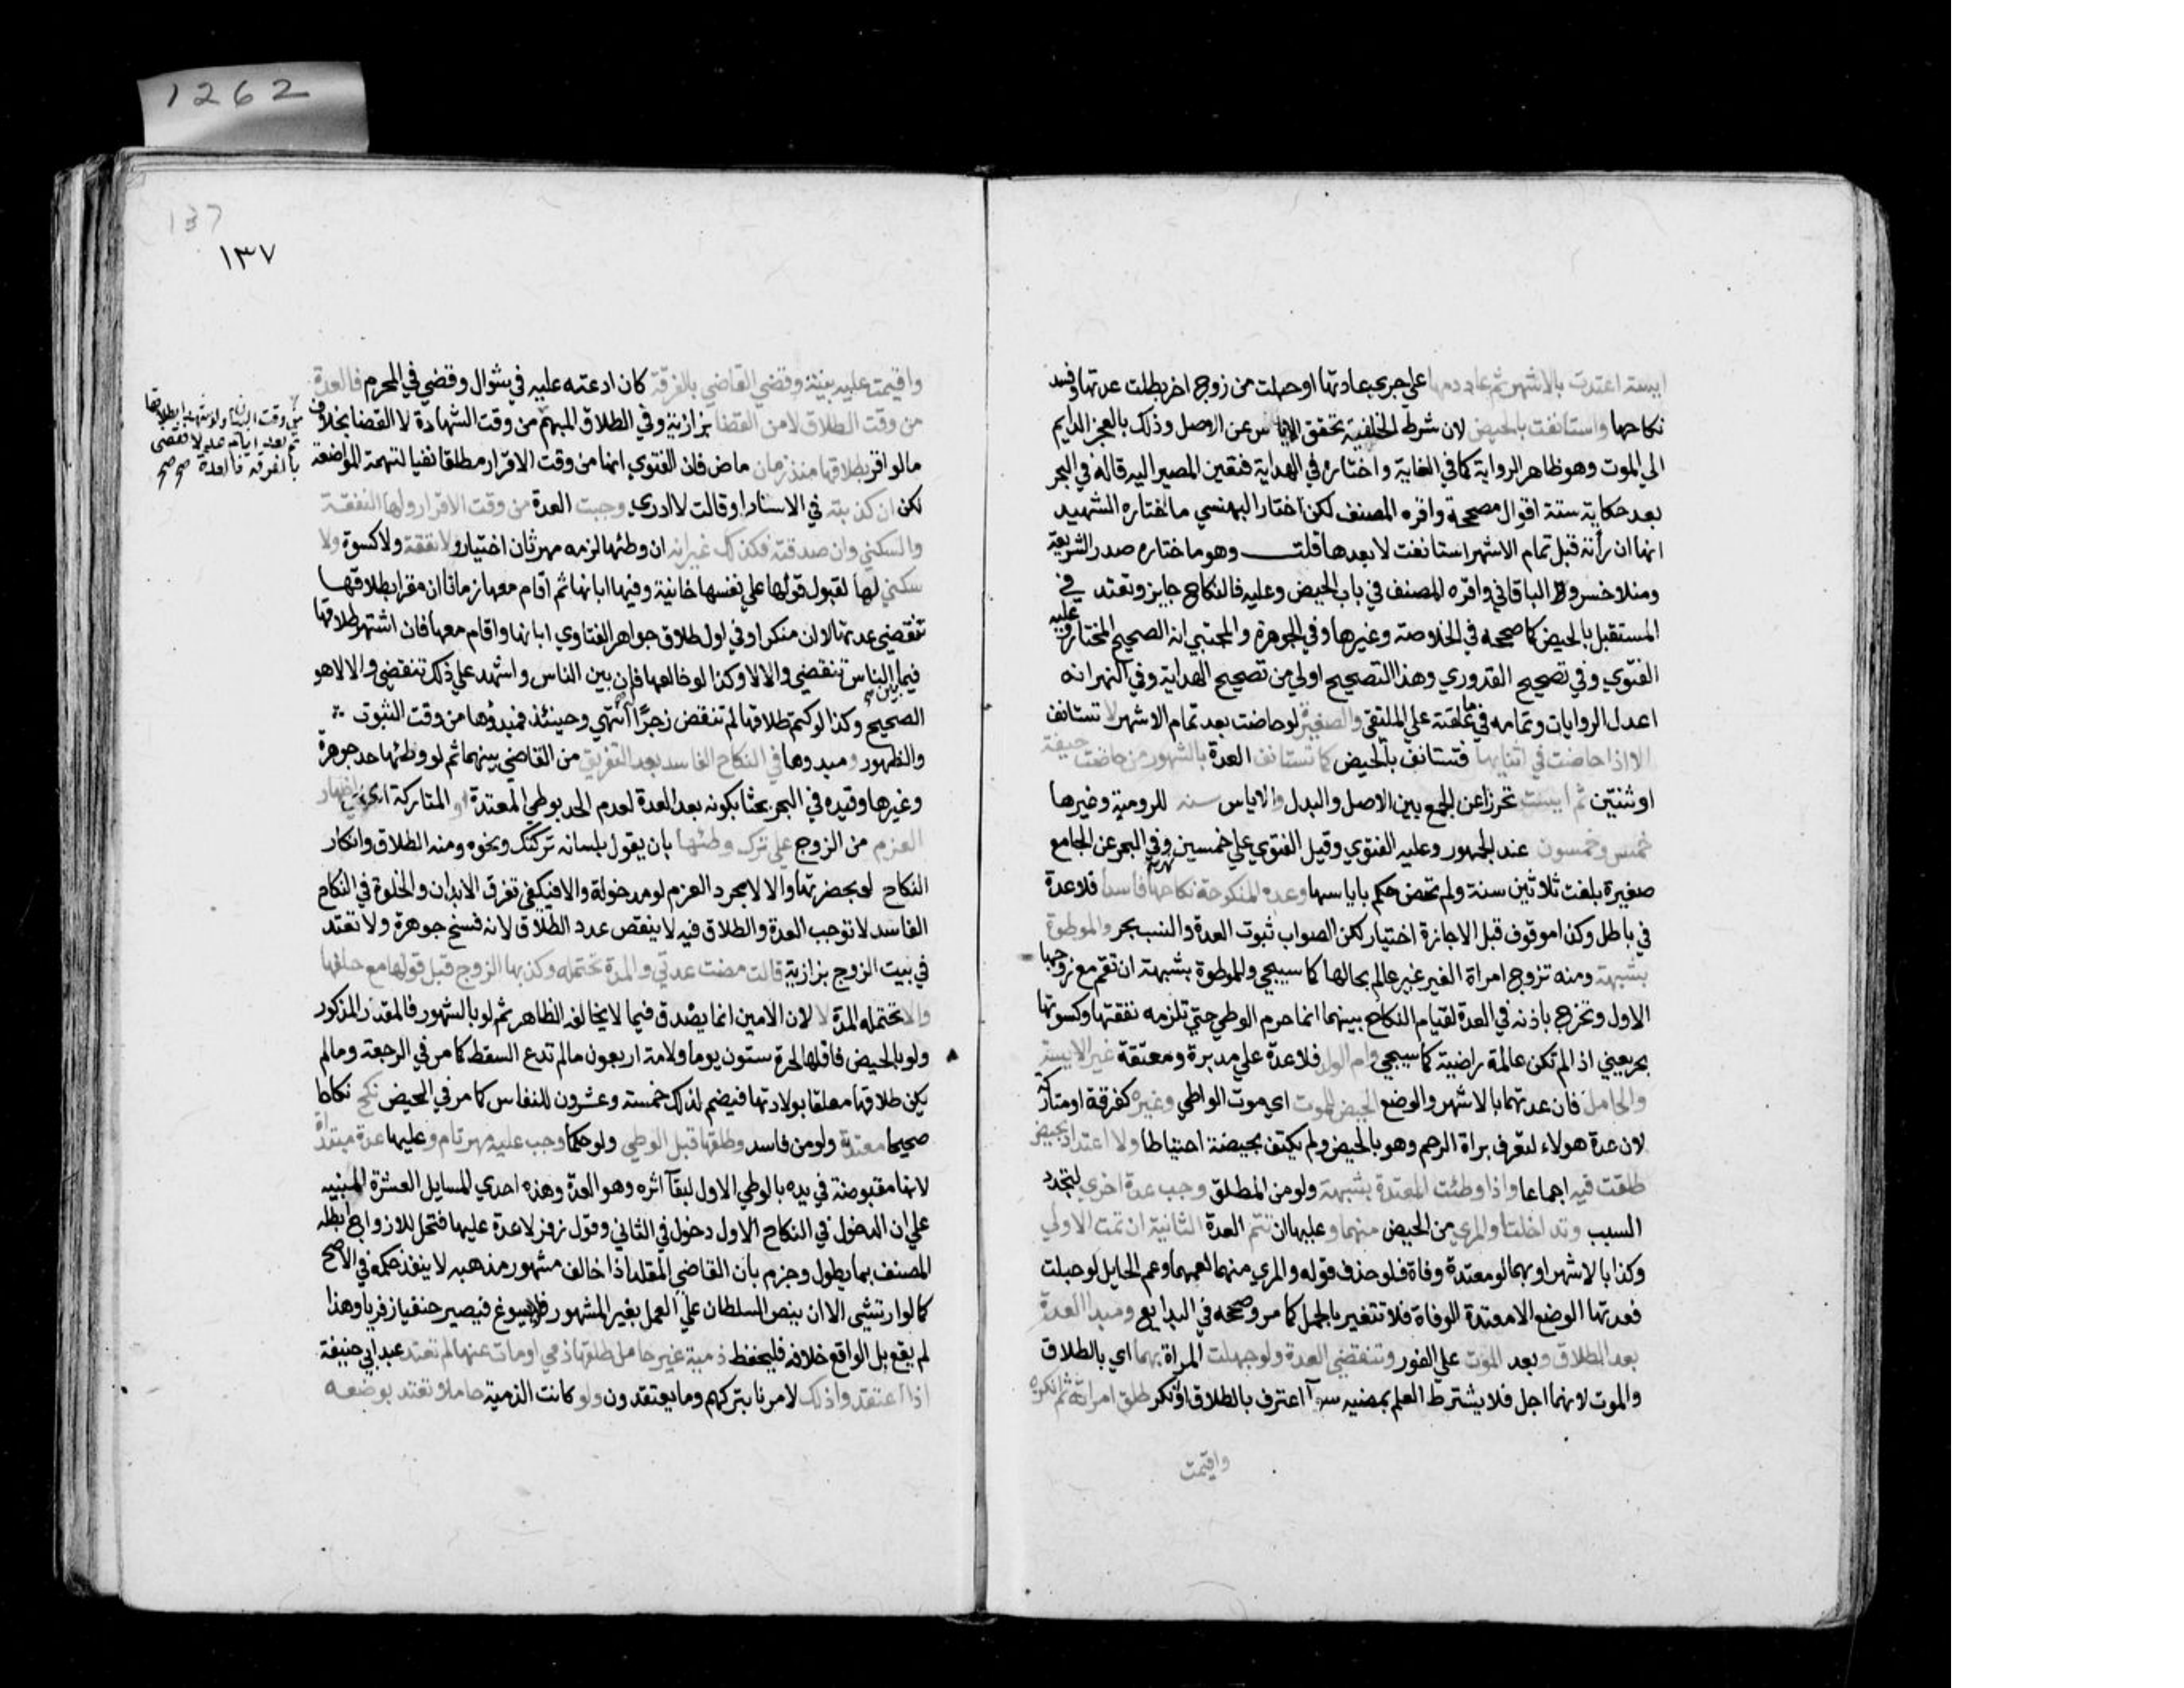 ايسة اعتدت بالاشهر ثم عاد دمها علي جري عادتها او حبلت من زوج اخر بطلت عدتها وفسد
نكاحها واستانفت بالحيض لان شرط الخلفية تحقق الاياس عن الاصل وذلك بالعجز الدايم
الي الموت وهو ظاهر الرواية كما في الغاية واختاره في الهداية فتعين المصير اليه قاله في البحر
بعد حكاية ستة اقوال مصححة واقره المصنف لكن اختار البهنسي ما اختاره الشهيد
انها ان رأته قبل تمام الاشهر استانفت لا بعدها قلت وهو ما ختاره صدر الشريعة
ومنلا خسرو والباقاني واقره المصنف في باب الحيض وعليه فالنكاح جايز وتعتد في
المستقبل بالحيض كما صححه في الخلاصة وغيرها وفي الجوهرة والمجتبي انه الصحيح المختار وعليه
الفتوي وفي تصحيح القدوري وهذا التصحيح اولي من تصحيح الهداية وفي النهر انه
اعدل الروايات وتمامه فيما علقته علي الملتقي والصغيرة لو حاضت بعد تمام الاشهر لا تستانف
الا اذا حاضت في اثنايها فتستانف بالحيض كما تستانف العدة بالشهور من حاضت حيضة
او ثنتين ثم ايست تحرزا عن الجمع بين الاصل والبدل والاياس سنه للرومية وغيرها
خمس وخمسون عند الجمهور وعليه الفتوي وقيل الفتوي علي خمسين نهر وفي البحر عن الجامع
صغيرة بلغت ثلاثين سنة ولم تحض حكم باياسها وعدة المنكوحة نكاحها فاسدا فلا عدة
في باطل وكذا موقوف قبل الاجازة اختيار لكن الصواب ثبوت العدة والنسب بحر والموطوة
بشبهة ومنه تزوج امراة الغير غير عالم بحالها كما سيجي وللموطوة بشبهة ان تقم مع زوجها
الاول وتخرج باذنه في العدة لقيام النكاح بينهما انما حرم الوطي حتي تلزمه نفقتها وكسوتها
بحر يعني اذ لم تكن عالمة راضية كما سيجي وام الولد فلا عدة علي مدبرة ومعتقة غير الايسة
والحامل فان عدتهما بالاشهر والوضع الحيض للموت اي موت الواطي وغيره كفرقة او متاركة
لان عدة هولاء لتعرف براة الرحم وهو بالحيض ولم يكتف بحيضة احتياطا ولا اعتداد بحيض
طلقت فيه اجماعا واذا وطئت المعتدة بشبهة ولو من المطلق وجب عدة اخري لتجدد
السبب وتداخلتا والمري من الحيض منهما وعليها ان تتم العدة الثانية ان تمت الاولي
وكذا بالاشهر او بهما لو معتدة وفاة فلو حذف قوله والمري منهما لعمهما وعم الحايل لو حبلت
فعدتها الوضع الا معتدة الوفاة فلا تتغير بالحمل كما مر وصححه في البدايع ومبدا العدة
بعد الطلاق وبعد الموت علي الفور وتنقضي العدة ولو جهلت المراة بهما اي بالطلاق
والموت لانهما اجل فلا يشترط العلم بمضيه سوآ اعترف بالطلاق او انكر طلق امراته ثم انكره
واقيمت
137
١٣٧
واقيمت عليه بينة وقضي القاضي بالفرقة كان ادعته عليه في شوال وقضي في المحرم فالعدة
من وقت الطلاق لا من القضا بزازية وفي الطلاق المبهم من وقت الشهادة لا القضا بخلاف
مالو اقر بطلاقها منذ زمان ماض فان الفتوي انها من وقت الاقرار مطلقا نفيا لتهمة المواضعة
لكن ان كذبته في الاسناد او قالت لا ادري وجبت العدة من وقت الاقرار ولها النفقة
والسكني وان صدقته فكذلك غير انه ان وطئها لزمه مهر ثان اختيار ولا نفقة ولا كسوة ولا
سكني لها لقبول قولها علي نفسها خانية وفيها ابانها ثم اقام معها زمانا ان مقرا بطلاقها
تنقضي عدتها لا ان منكرا وفي اول طلاق جواهر الفتاوي ابانها واقام معها فان اشتهر طلاقها
فيما بين الناس تنقضي والا لا وكذا لو خالعها فان بين الناس واشهد علي ذلك تنقضي والا لا هو
الصحيح وكذا لو كتم طلاقها لم تنقض زجرًا انتهي وحينئذ فمبدؤها من وقت الثبوت
والظهور ومبدوها في النكاح الفاسد بعد التفريق من القاضي بينهما ثم لو وطئها حد جوهرة
وغيرها وقيده في البحر بحثا بكونه بعد العدة لعدم الحد بوطي المعتدة او المتاركة اي اظهار
العزم من الزوج علي ترك وطئها بان يقول بلسانه تركتك ونحوه ومنه الطلاق وانكار
النكاح لو بحضرتها والا لا لا بمجرد العزم لو مدخولة والا فيكفي تفرق الابدان والخلوة في النكاح
الفاسد لا توجب العدة والطلاق فيه لا ينقص عدد الطلاق لانه فسخ جوهرة ولا تعتد
في بيت الزوج بزازية قالت مضت عدتي والمدة تحتمله وكذبها الزوج قبل قولها مع حلفها
والا تحتمله المدة لا لان الامين انما يصدق فيما لا يخالفه الظاهر ثم لو بالشهور فالمقدر المذكور
ولو بالحيض فاقلها لحرة ستون يوما ولامة اربعون مالم تدع السقط كما مر في الرجعة ومالم
يكن طلاقها معلقا بولادتها فيضم لذلك خمسة وعشرون للنفاس كما مر في الحيض نكح نكاحا
صحيحا معتدته ولو من فاسد وطلقها قبل الوطي ولو حكما وجب عليه مهر تام وعليها عدة مبتداة
لانها مقبوضة في يده بالوطي الاول لبقآ اثره وهو العدة وهذه احدي المسايل العشرة المبنيه
علي ان الدخول في النكاح الاول دخول في الثاني وقول زفر لا عدة عليها فتحل للازواج ابطله
المصنف بما يطول وجزم بان القاضي المقلد اذا خالف مشهور مذهبه لا ينفذ حكمه في الاصح
كما لو ارتشي الا ان ينص السلطان علي العمل بغير المشهور فيسوغ فيصير حنفيا زفريا وهذا
لم يقع بل الواقع خلافه فليحفظ ذمية غير حامل طلقها ذمي او مات عنها لم تعتد عند ابي حنيفة
اذا اعتقدوا ذلك لامرنا بتركهم وما يعتقدون ولو كانت الذمية حاملا وتعتد بوضعه
1262